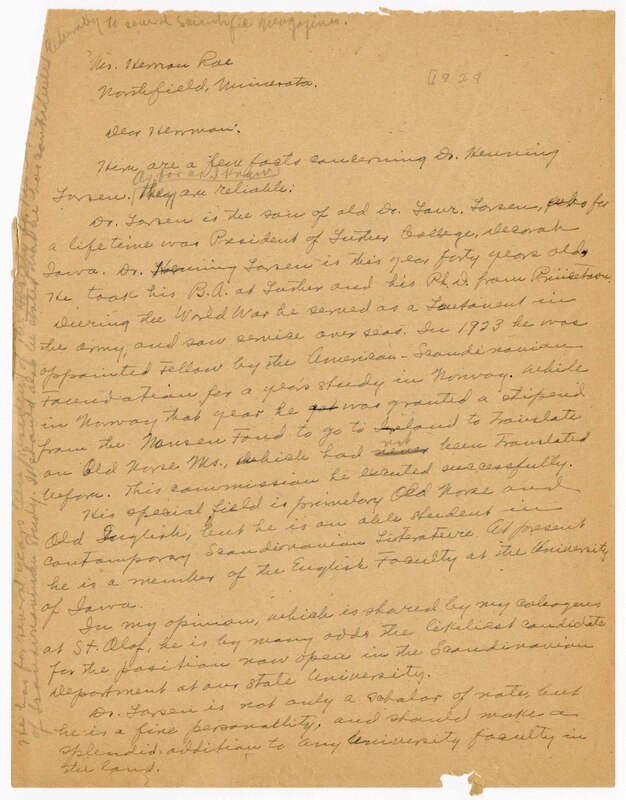 liberally to several scientific magazines.
Mr. Herman Roe
Northfield, Minnesota.
1929
Dear Herman:
Here are a few facts concerning Dr. Henning
As far as I know
Larsen. they are reliable:
Dr. Larsen is the son of old Dr. Laur. Larsen, who for
a life time was President of Luther College, Decorah
Iowa. Dr. Henning Larsen is this year forty years old.
He took his B.A. at Luther and his Ph.D. from Princeton.
During the World War he served as a Lieutenant in
the army, and saw service over seas. In 1923 he was
appointed Fellow by the American-Scandinavian
Foundation, for a years study in Norway. While
in Norway that year he got was granted a stipend
from the Nansen Fond to go to Ireland to translate
not
an Old Norse Ms., which had never been translated
before. This commission he excuted successfully.
His special field is primelary Old Norse and
Old English, but he is an able student in
contemporary Scandinavian Literature. At present
he is a member of the English Faculty at the University
of Iowa.
In my opinion, which is shared by my coleagues
at St. Olaf, he is by many odds the likeliest candidate
for the position now open in the Scandinavian
Department at our State University.
Dr. Larsen is not only a scholar of note, but
he is a fine personallity, and should make a
splendid addition to any University faculty in
the land.
He has for several years been
of Scandinavian Study. I should also he stated that he has contributed